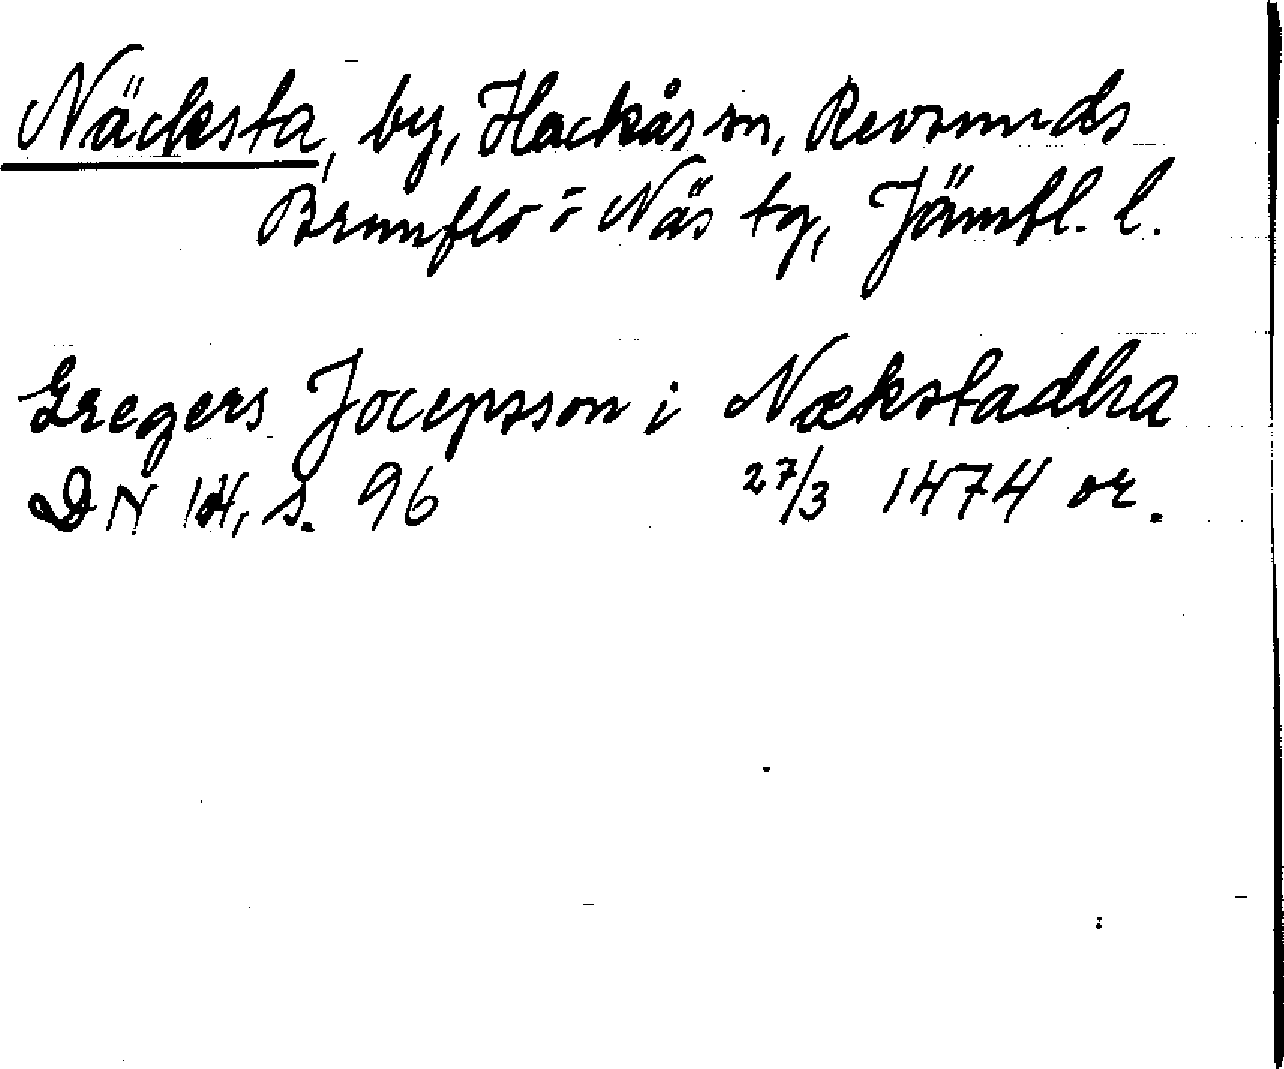 Näcksta, by, Hackås sn, Revsunds
Brunflo o Näs tg, Jämtl. l.
Gregers Jocepsson i Nækstadha
DN 14, s. 96 27/3 1474 or.